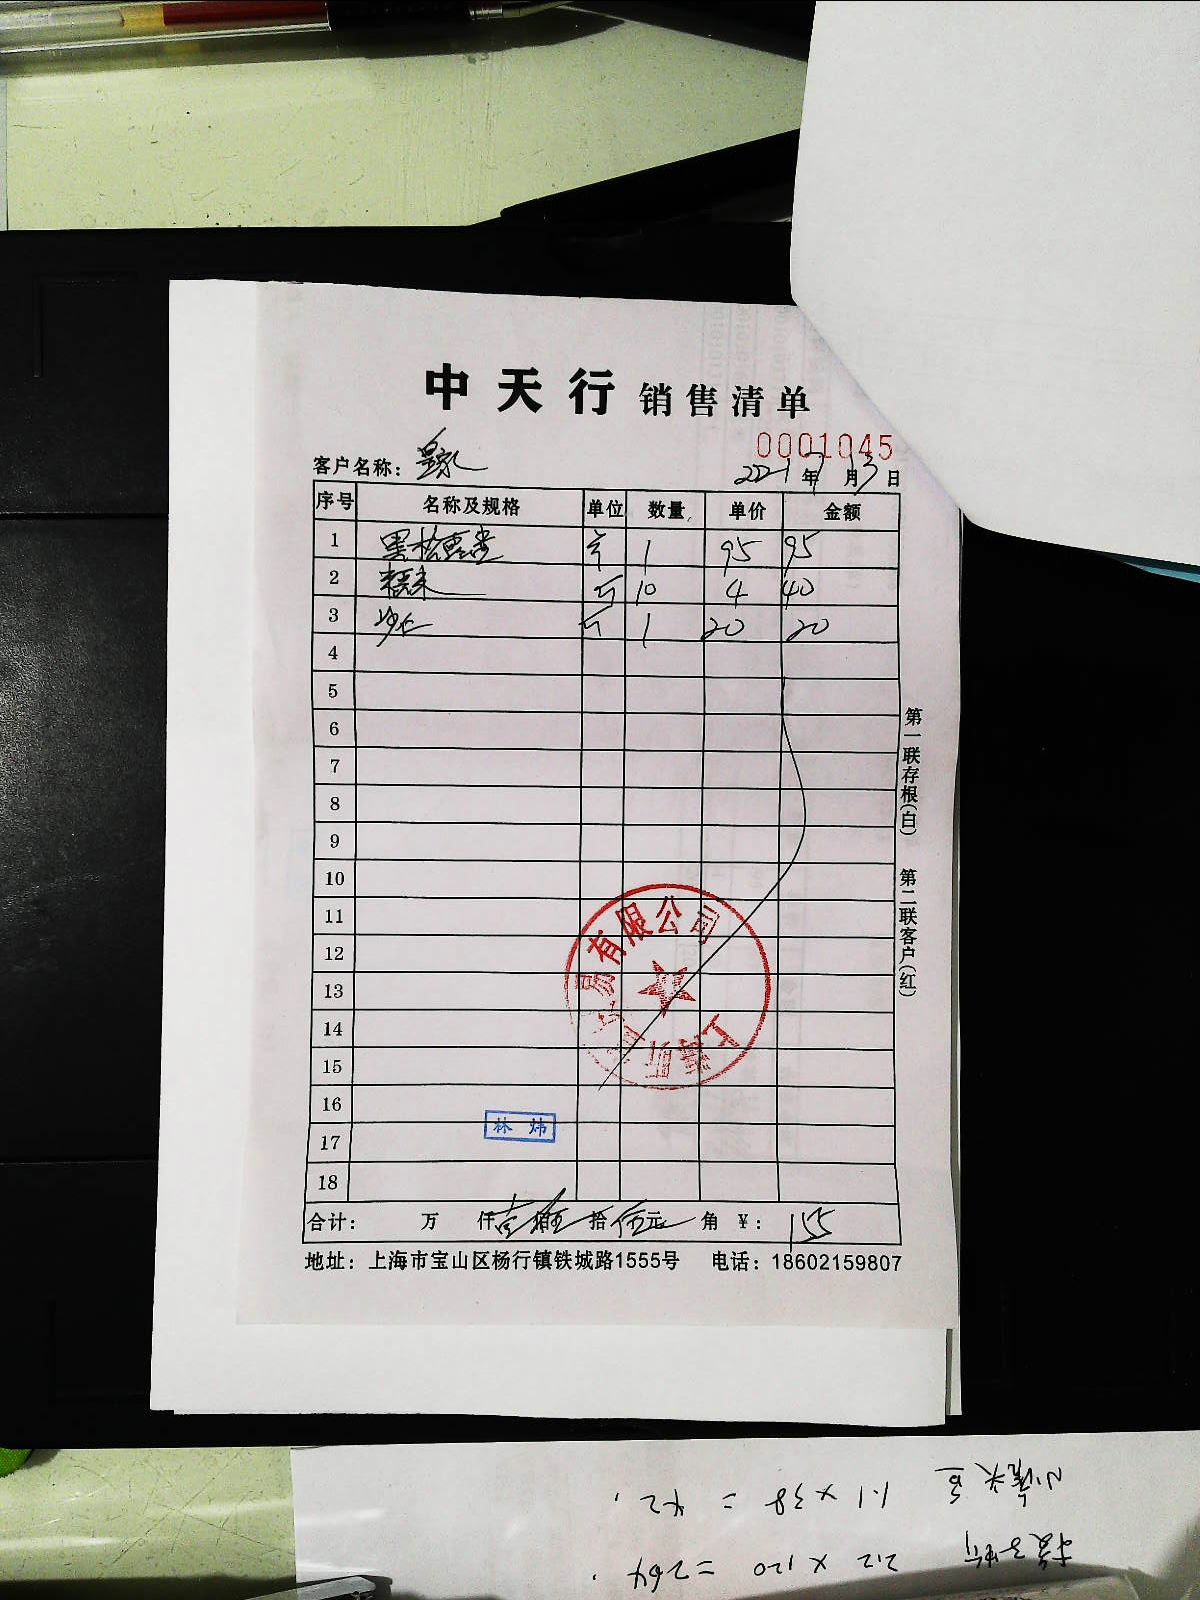 中天行 销售清单
0001045
客户名称：皇家 2021年7月13日
序号 名称及规格 单位 数量 单价 金额
1 1 95 95
2 糯米 斤 10 4 40
3 沙仁 斤 1 20 20
4
5
6
7
8
9
10
11
12
13
14
15
16
17
18
有限公司
上海
林 炜
合计： 万 仟 壹佰 伍拾 伍元 角 ￥： 155
地址：上海市宝山区杨行镇铁城路1555号 电话：18602159807
第一联存根(白) 第二联客户(红)
1.1 x 38 = 42.
2.2 x 120 = 264.